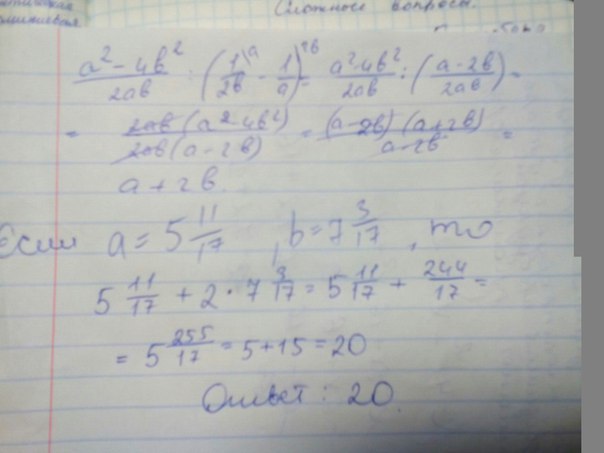 Сложные вопросы.
a² - 4b² / 2ab : (1/2b \a - 1/a \2b) = a² 4b² / 2ab : (a - 2b / 2ab) =
= 2ab (a² 4b²) / 2ab (a - 2b) = (a - 2b) (a + 2b) / a - 2b =
a + 2b.
Если a = 5 11/17 , b = 7 3/17 , то
5 11/17 + 2 · 7 3/17 = 5 11/17 + 244/17 =
= 5 255/17 = 5 + 15 = 20
Ответ : 20.